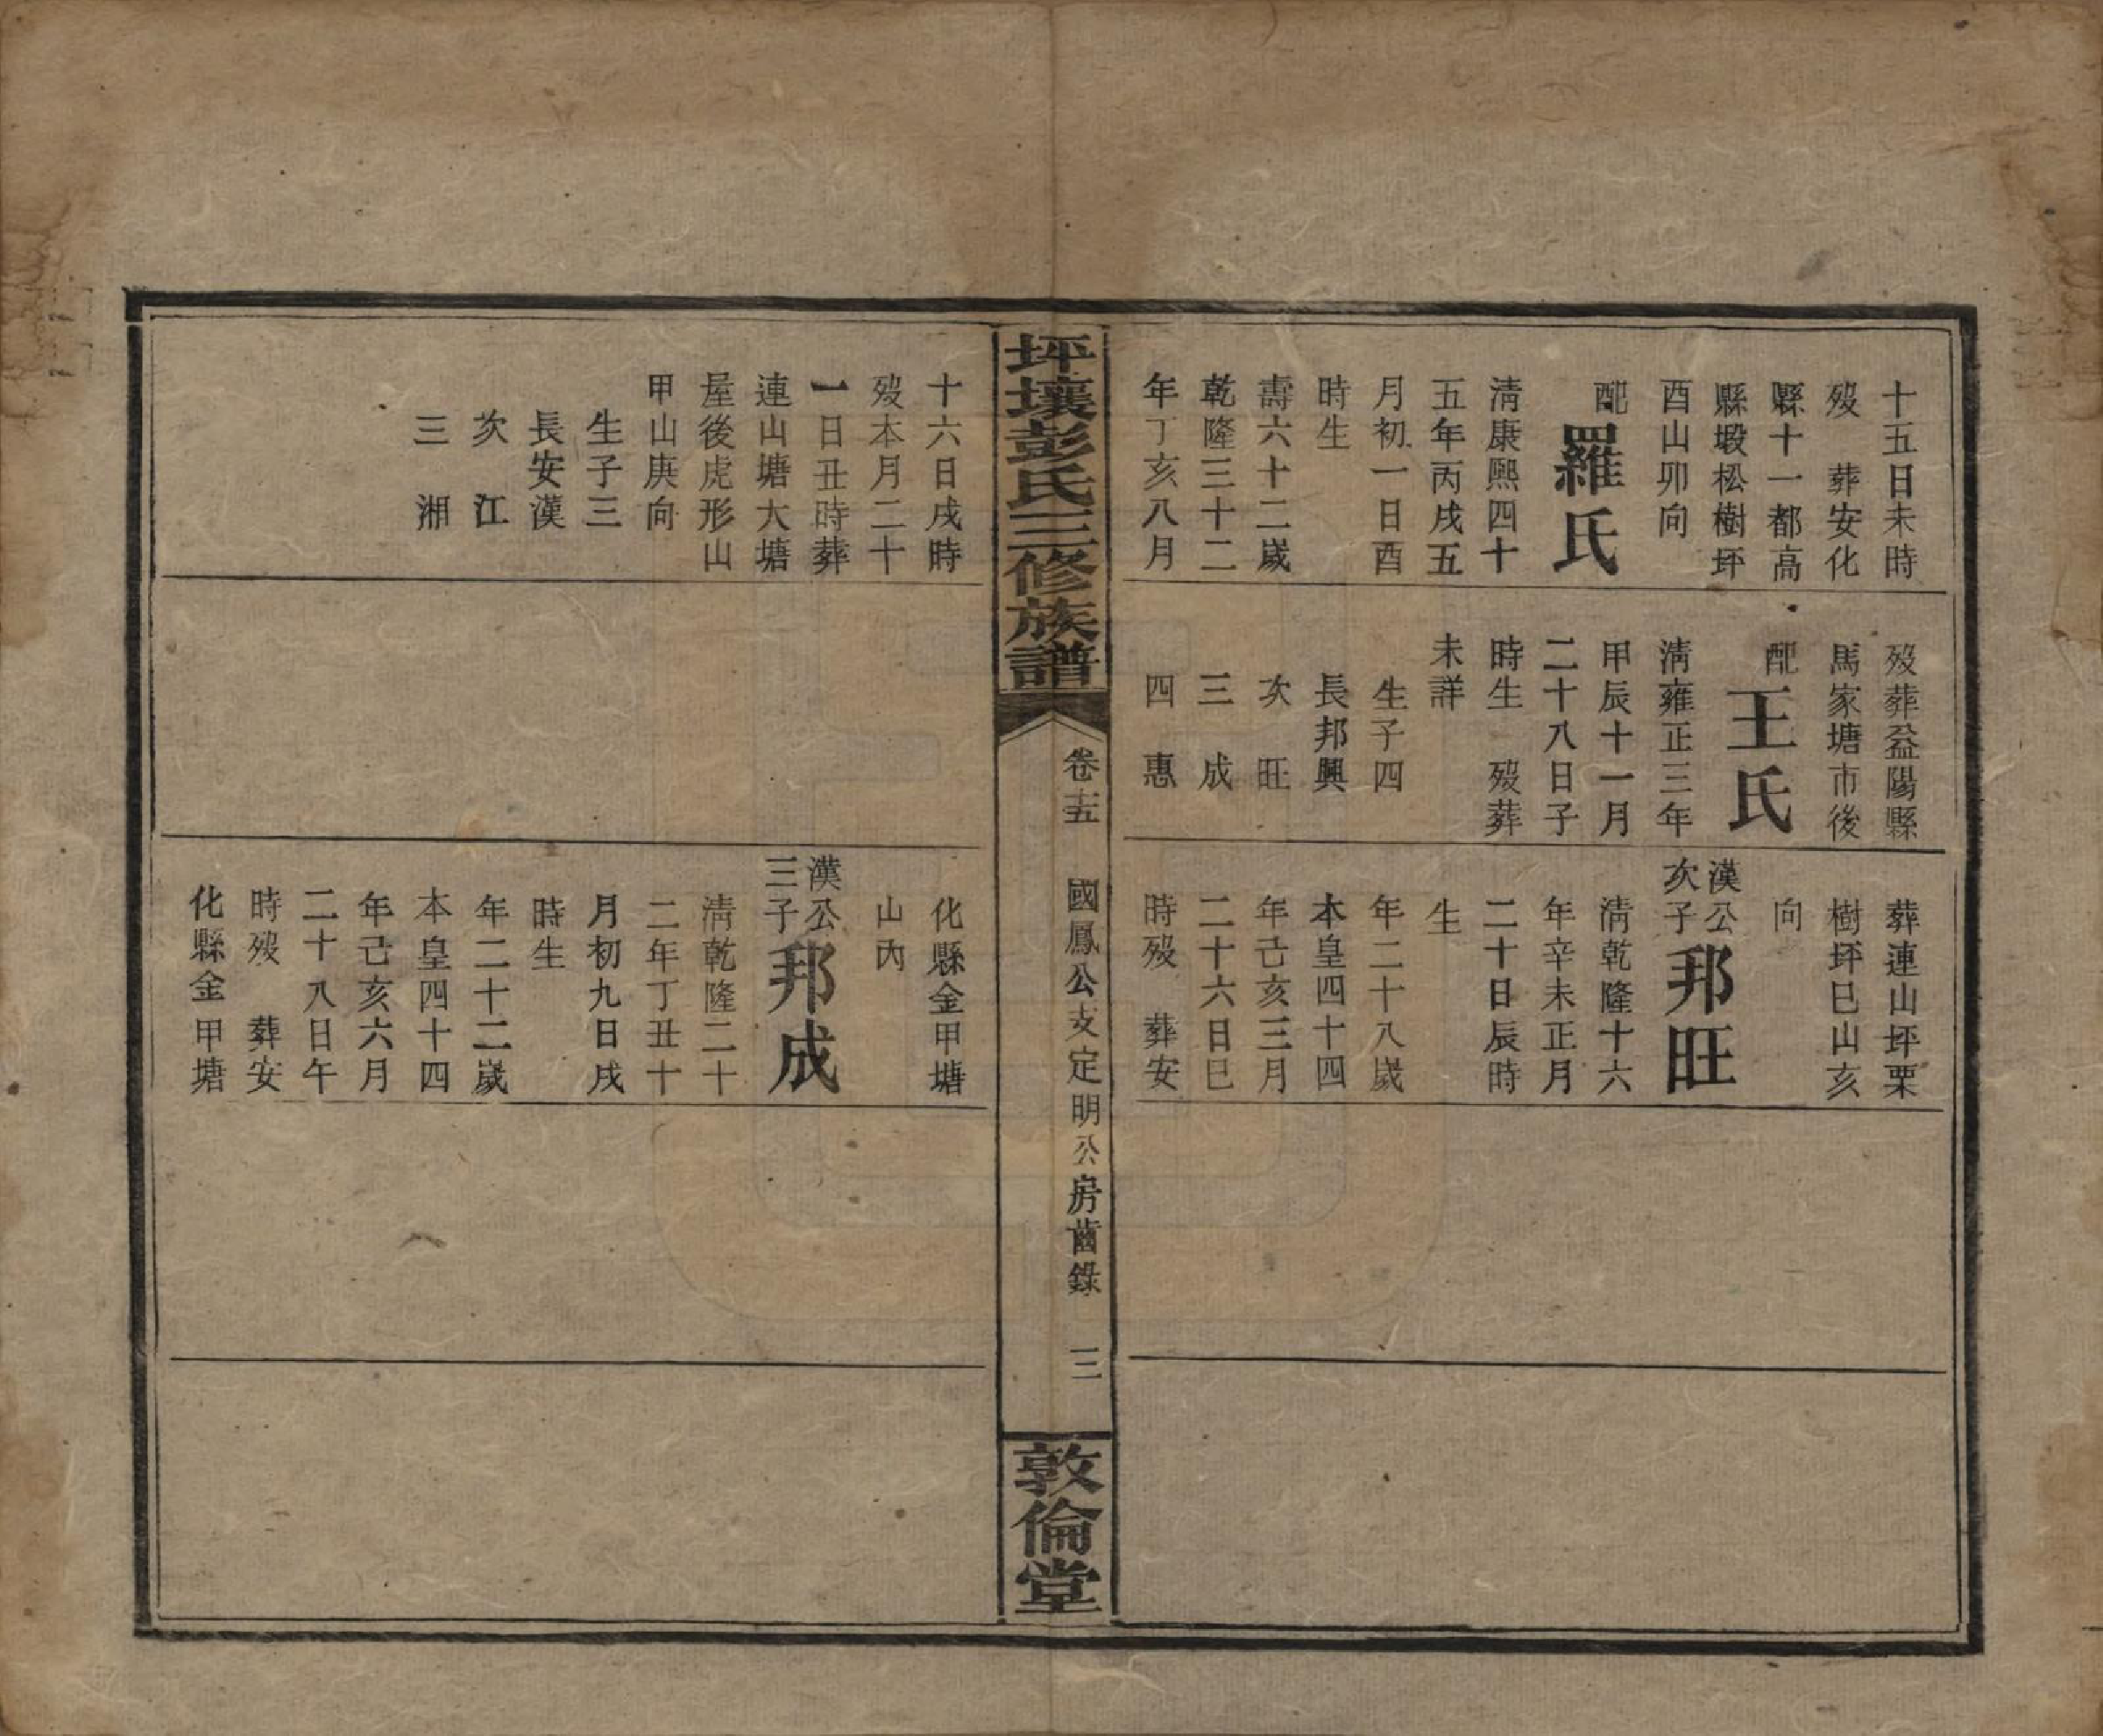 十五日未時
歿　葬安化
縣十一都高
縣塅松樹坪
酉山卯向
配羅氏
清康熙四十
五年丙戌五
月初一日酉
時生
壽六十二歲
乾隆三十二
年丁亥八月
歿葬益陽縣
馬家塘市後
配王氏
清雍正三年
甲辰十一月
二十八日子
時生　歿葬
未詳
生子四
長邦興
次　旺
三　成
四　惠
葬連山坪栗
樹坪巳山亥
向
漢公次子邦旺
清乾隆十六
年辛未正月
二十日辰時
生
年二十八歲
本皇四十四
年己亥三月
二十六日巳
時歿　葬安
坪壤彭氏三修族譜
卷十五　國鳳公支定明公房齒錄　三
敦倫堂
十六日戌時
歿本月二十
一日丑時葬
連山塘大塘
屋後虎形山
甲山庚向
生子三
長安漢
次　江
三　湘
化縣金甲塘
山內
漢公三子邦成
清乾隆二十
二年丁丑十
月初九日戌
時生
年二十二歲
本皇四十四
年己亥六月
二十八日午
時歿　葬安
化縣金甲塘